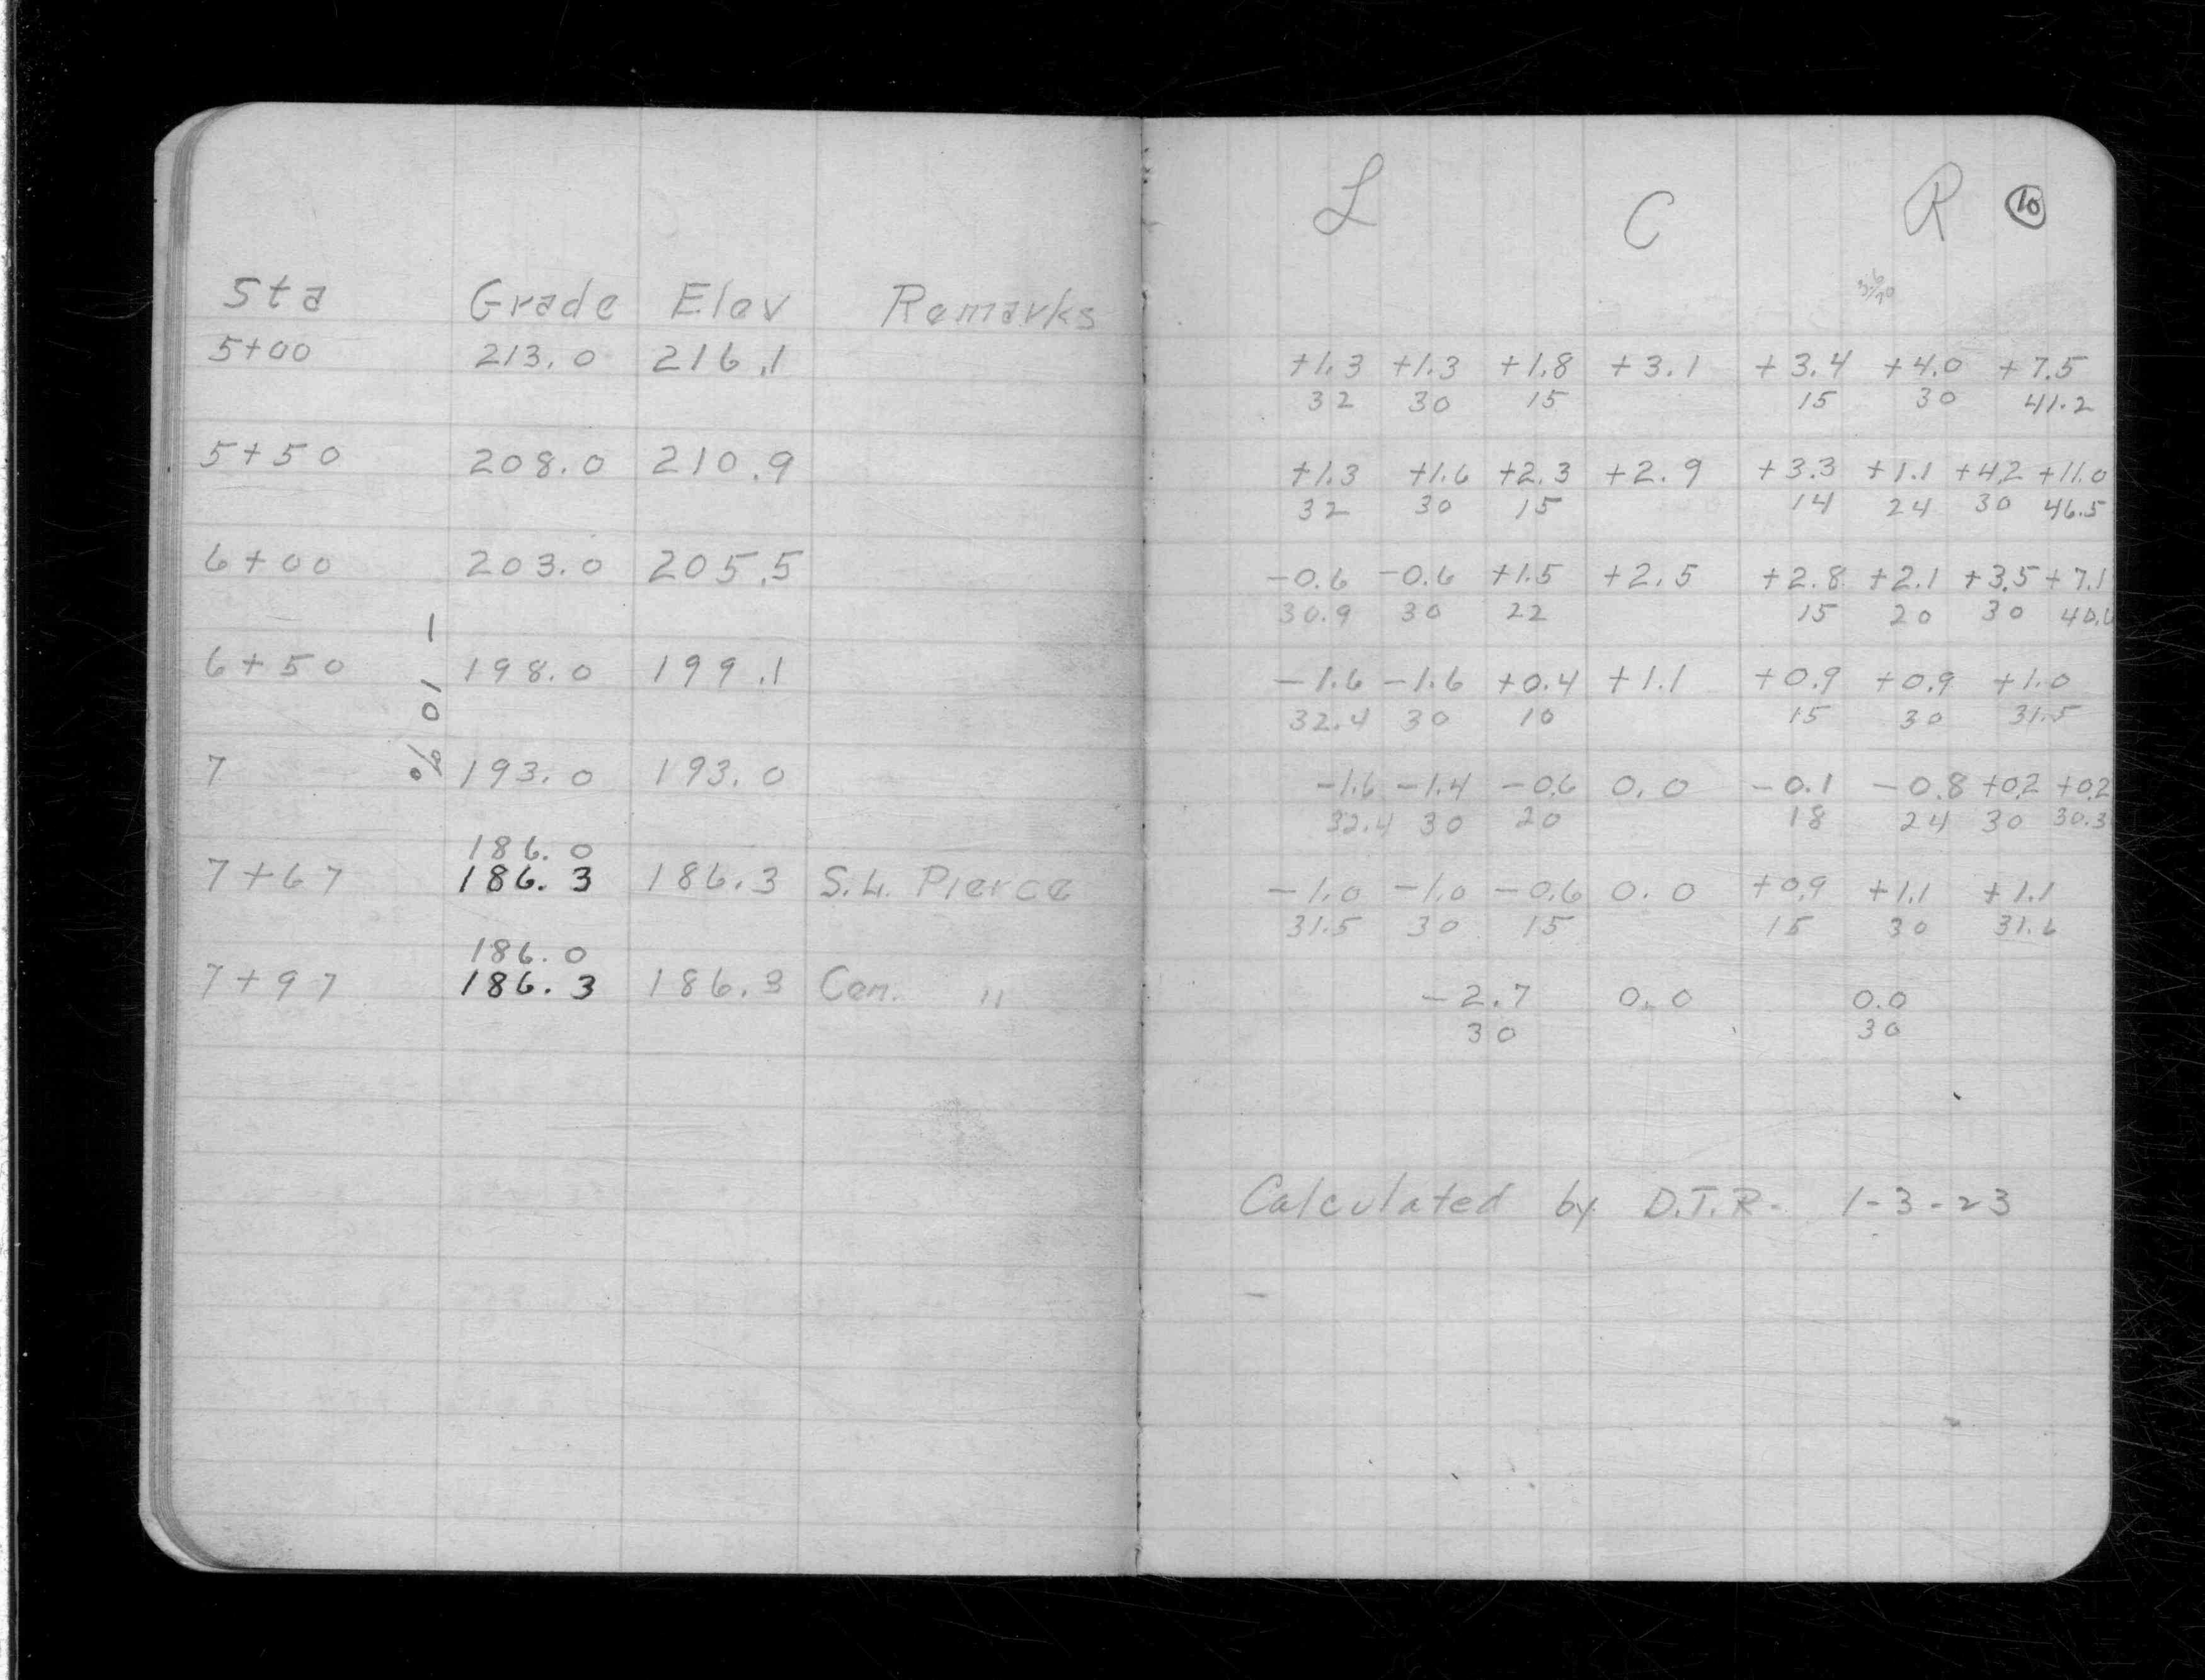 Sta Grade Elev Remarks
5+00 213.0 216.1
5+50 208.0 210.9
6+00 203.0 205.5
6+50 198.0 199.1
7 193.0 193.0
186.0
7+67 186.3 186.3 S.L. Pierce
186.0
7+97 186.3 186.3 Cen. "
- 10 %
L C R 10
+1.3 +1.3 +1.8 +3.1 +3.4 +4.0 +7.5
32 30 15 15 30 41.2
+1.3 +1.6 +2.3 +2.9 +3.3 +1.1 +4.2 +11.0
32 30 15 14 24 30 46.5
-0.6 -0.6 +1.5 +2.5 +2.8 +2.1 +3.5 +7.1
30.9 30 22 15 20 30 40.6
-1.6 -1.6 +0.4 +1.1 +0.9 +0.9 +1.0
32.4 30 10 15 30 31.5
-1.6 -1.4 -0.6 0.0 -0.1 -0.8 +0.2 +0.2
32.4 30 20 18 24 30 30.3
-1.0 -1.0 -0.6 0.0 +0.9 +1.1 +1.1
31.5 30 15 15 30 31.6
-2.7 0.0 0.0
30 30
Calculated by D.T.R. 1-3-23